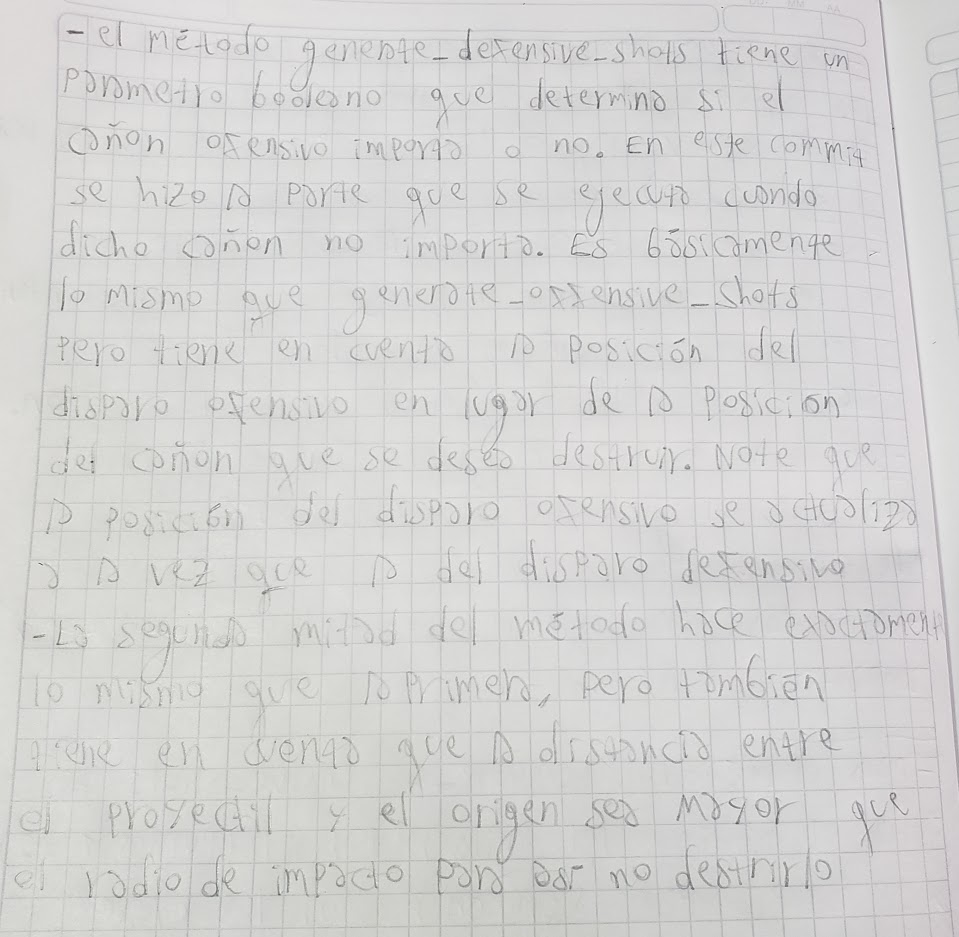 - el método generate_defensive_shots tiene un
parametro booleano que determina si el
cañon ofensivo importa o no. En este commit
se hizo la parte que se ejecuta cuando
dicho cañon no importa. Es básicamenge
lo mismo que generate_offensive_shots
pero tiene en cuenta la posición del
disparo ofensivo en lugar de la posicion
del cañon que se desea destruir. Note que
la posición del disparo ofensivo se actualiza
a la vez que la del disparo defensivo
- La segunda mitad del método hace exactament
lo mismo que la primera, pero también
tiene en cuenta que la distancia entre
el proyectil y el origen sea mayor que
el radio de impacto para asi no destrirlo